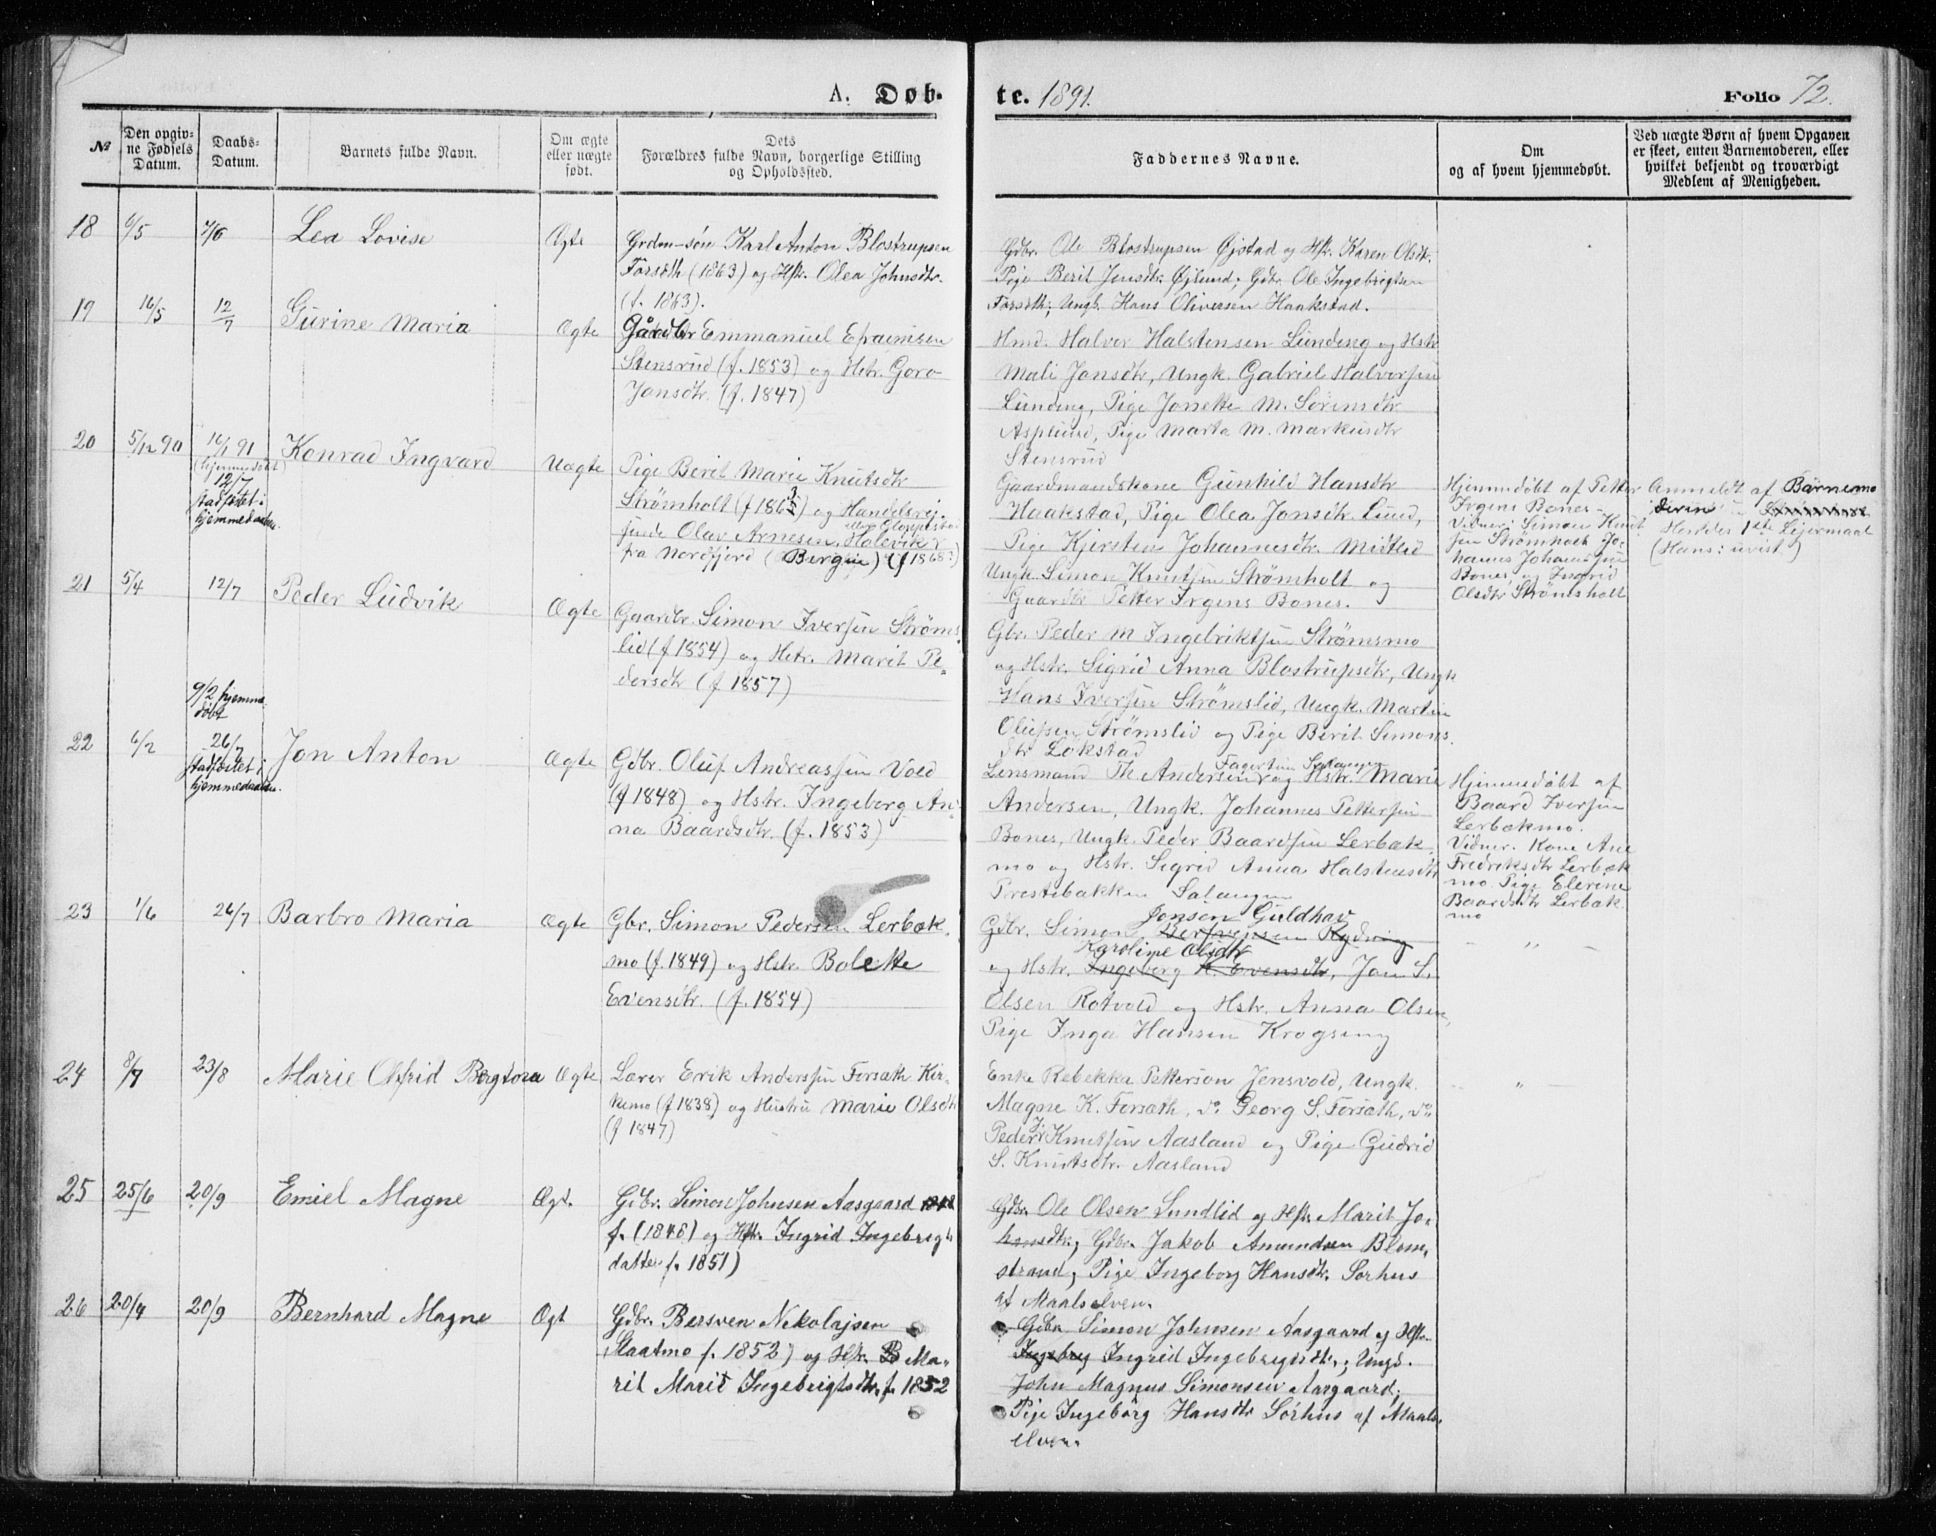 A. Døb-
te. 1891.
Folio 72.
№
Den opgiv-
ne Fødsels
Datum.
Daabs-
Datum.
Barnets fulde Navn.
Om ægte
eller uægte
født.
Dets
Forældres fulde Navn, borgerlige Stilling
og Opholdssted.
Faddernes Navne.
Om
og af hvem hjemmedøbt.
Ved uægte Børn af hvem Opgaven
er skeet, enten Barnemoderen, eller
hvilket bekjendt og troværdigt
Medlem af Menigheden.
18
6/5
7/6
Lea Lovise
Ægte
Grdm-søn Karl Anton Blostrupsen
Forseth (1863) og Hst. Olea Johnsdtr.
(f. 1863).
Gdbr. Ole Blostrupsen Øjstad og Hst. Karen Olsdtr.
Pige Berit Jonsdtr. Øjlund; Gdbr. Ole Ingebrigtsen
Forseth; Ungk. Hans Oliversen Haakstad.
19
16/5
12/7
Gurine Maria
Ægte
Gårdbr Emmanuel Efraimsen
Stensrud (f. 1853) og Hstr. Goro
Jonsdtr. (f. 1847)
Hmd. Halvor Halstensen Lunding og Hstr
Mali Jonsdtr, Ungk. Gabriel Halvorsen
Lunding, Pige Jonette M. Sørensdtr
Asplund, Pige Marta M. Markusdtr
Stensrud
20
5/12 90
16/1 91
(hjemmedøbt)
12/7
stadfæstet i
hjemmedaaben.
Konrad Ingvard
Uægte
Pige Berit Marie Knutsdtr
Strømholt (f 1863) og Handelsrej-
sende Olav Arnesen, Holevik
fra Nordfjord (Bergen) (f 1868?)
Gaardmandskone Gunhild Hansdtr
Haakstad, Pige Olea Jonsdtr. Lund,
Pige Kjersten Johannesdtr. Midtlid
Ungk. Simon Knutsen Strømholt og
Gaardbr Petter Irgens Bones.
Hjemmedøbt af Petter
Irgens Bones-
Vidner: Simon Knut
sen Strømholt Jo-
hannes Johansen
Bones, og Ingrid
Olsdtr Strømsholt
Anmeldt af Barnemo
deren
Hendes 1ste Lejermaal
(Hans: uvist)
21
5/4
12/7
Peder Ludvik
Ægte
Gaardbr. Simon Iversen Strøms-
lid (f 1854) og Hstr. Marit Pe-
dersdtr (f 1857)
Gbr. Peder M Ingebriktsen Strømsmo
og Hstr. Sigrid Anna Blostrupsdtr, Ungk
Hans Iversen Strømslid, Ungk. Martin
Olufsen Strømslid og Pige Berit Simons-
dtr Løkstad
22
6/2
9/2 hjemme
døbt
26/7
stadfæstet i
hjemmedaaben.
Jon Anton
Ægte
Gdbr. Oluf Andreassen Vold
(f 1848) og Hstr. Ingeborg An-
na Baardsdtr. (f. 1853)
Fagertun Salangen
Lensmand Th. Andersen og Hstr. Marie
Andersen, Ungk. Johannes Pettersen
Bones, Ungk. Peder Baardsen Lerbæk
mo og Hstr. Sigrid Anna Halstensdtr
Prestebakken Salangen
Hjemmedøbt af
Baard Iversen
Lerbækmo.
Vidner. Kone Ane
Fredriksdtr Lerbæk
mo. Pige Elerine
Baardsdtr Lerbæk
mo
23
1/6
26/7
Barbro Maria
Ægte
Gbr. Simon Pedersen Lerbæk-
mo (f. 1849) og Hstr. Bolette
Evensdtr. (f. 1854)
Jonsen Guldhav
Gdbr. Simon Rydning
Karoline Olsdtr
og Hstr. Ingeborg K. Evensdtr, Jon S.
Olsen Rotvold og Hstr. Anna Olsen,
Pige Inga Hansen Krogseng
- " -
24
8/7
23/8
Marie Ovfrid Bergtora
Ægte
Lærer Erik Anderssen Forsæth Kir-
kemo (f 1838) og Hustru Marie Olsdtr
(f 1847)
Enke Rebekka Petterson Jensvold, Ungk.
Magne K. Forsæth, do. Georg S. Forsæth, do.
Peder J. Knutsen Aasland og Pige Gudrid
S. Knutsdtr. Aasland
- " -
25
25/6
20/9
Emiel Magne
Ægt.
Gdbr. Simon Johnsen Aasgaard
f. (1848) og Hstr. Ingrid Ingebrigts
datter f. 1851)
Gdbr. Ole Olsen Lundlid og Hstr. Marit Jo-
hansdtr; Gdbr. Jakob Amundsen Blom-
strand; Pige Ingeborg Hansdtr. Sørhus
af Maalselven.
26
20/4
20/9
Bernhard Magne
Ægt
Gdbr. Bersven Nikolajsen
Slaatmo f. 1852) og Hstr. B Ma-
rit Marit Ingebrigtsdtr. f. 1852
Gdbr. Simon Johnsen Aasgaard og Hstr.
Ingeborg Ingrid Ingebrigtsdtr.; Ungk.
John Magnus Simonsen Aasgaard;
Pige Ingebørg Hansdtr Sørhus af Maals-
elven.